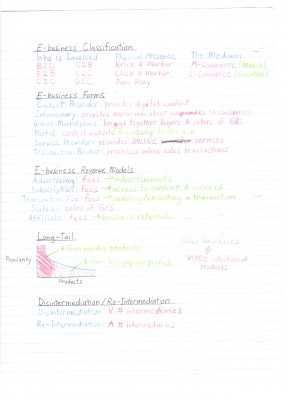 E-business Classification
Who is Involved Physical Presence The Medium
B2C C2B Brick & Mortar M-Commerce (Mobile)
B2B C2C Click & Mortar L-Commerce (Location)
G2C Pure Play
E-business Forms
Content Provider: provides digital content
Intermediary: provides useful info about companies to consumers
Online Marketplace: brings together buyers & sellers of G&S
Portal: central website → gateway to the web
Service Provider: provides ONLINE services
Transaction Broker: processes online sales transactions
E-business Revenue Models
Advertising: fees → advertisements
Subscription: fees → access to content & services
Transaction fee: fees → enabling/executing a transaction
Sales: sales of G&S
Affiliate: fees → business referrals
Long-Tail
$ from popular products
Popularity
$ from less popular products
Products
Online businesses
WIDER selection of products
Disintermediation/Re-Intermediation
Disintermediation: V # intermediaries
Re-Intermediation: Λ # intermediaries